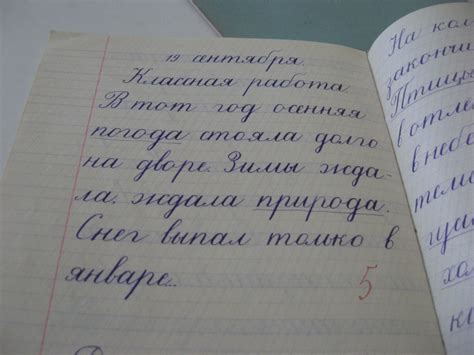 19 сентября.
Классная работа.
В тот год осенняя
погода стояла долго
на дворе. Зимы жда-
ла, ждала природа.
Снег выпал только в
январе.
5
На кол
закончи
Птицы
в отле
в небе
тем
гу
хо
к